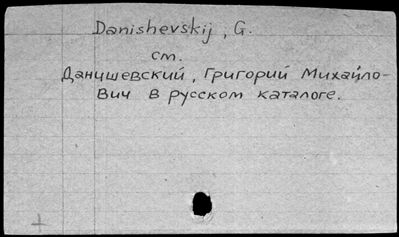 Danishevskij, G.
см.
Данишевский, Григорий Михайло-
вич в русском каталоге.